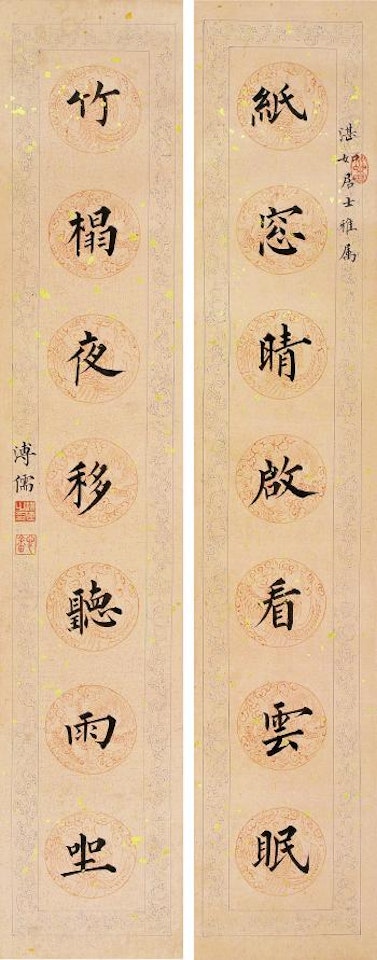 湛如居士雅属
紙窓晴啟看雲眠
竹榻夜移聽雨坐
溥儒